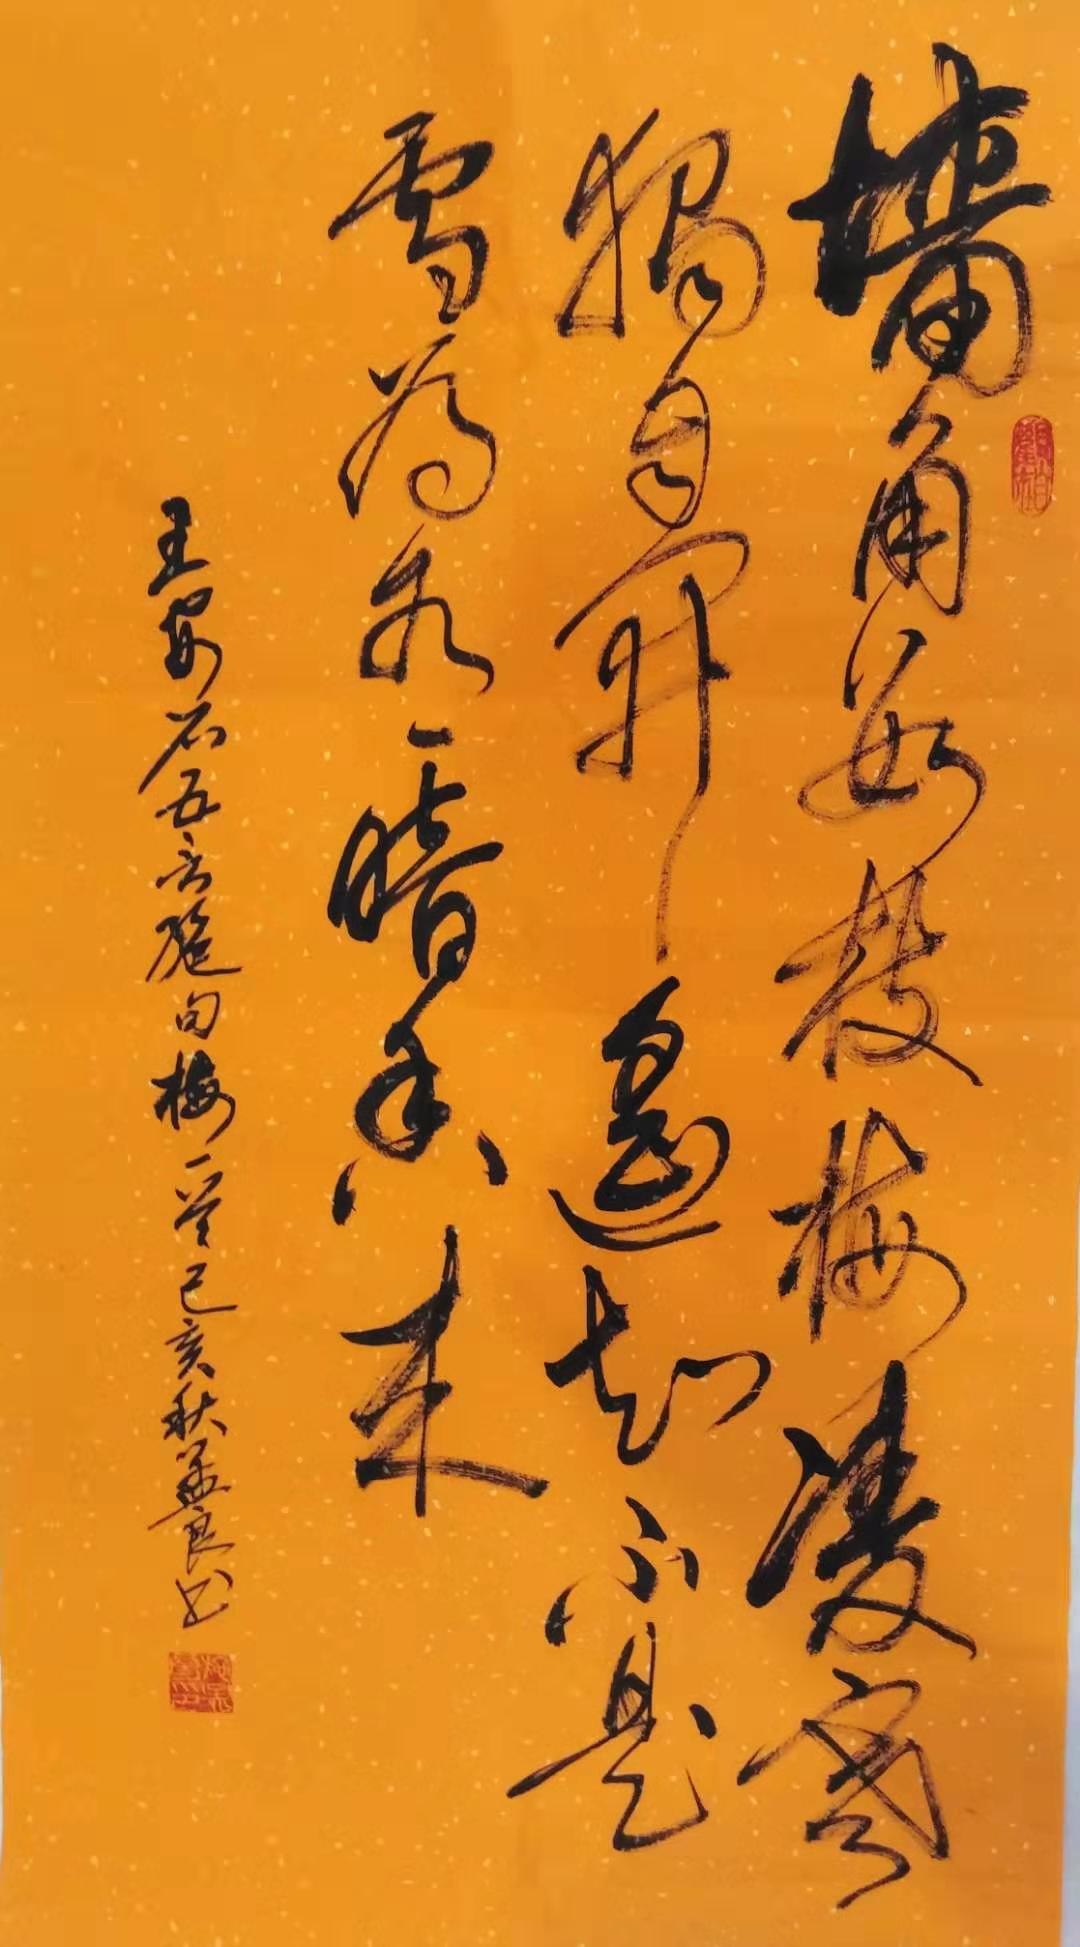 墙角数枝梅凌寒
独自开遥知不是
雪为有暗香来
王安石五言绝句梅一首己亥秋孟良书